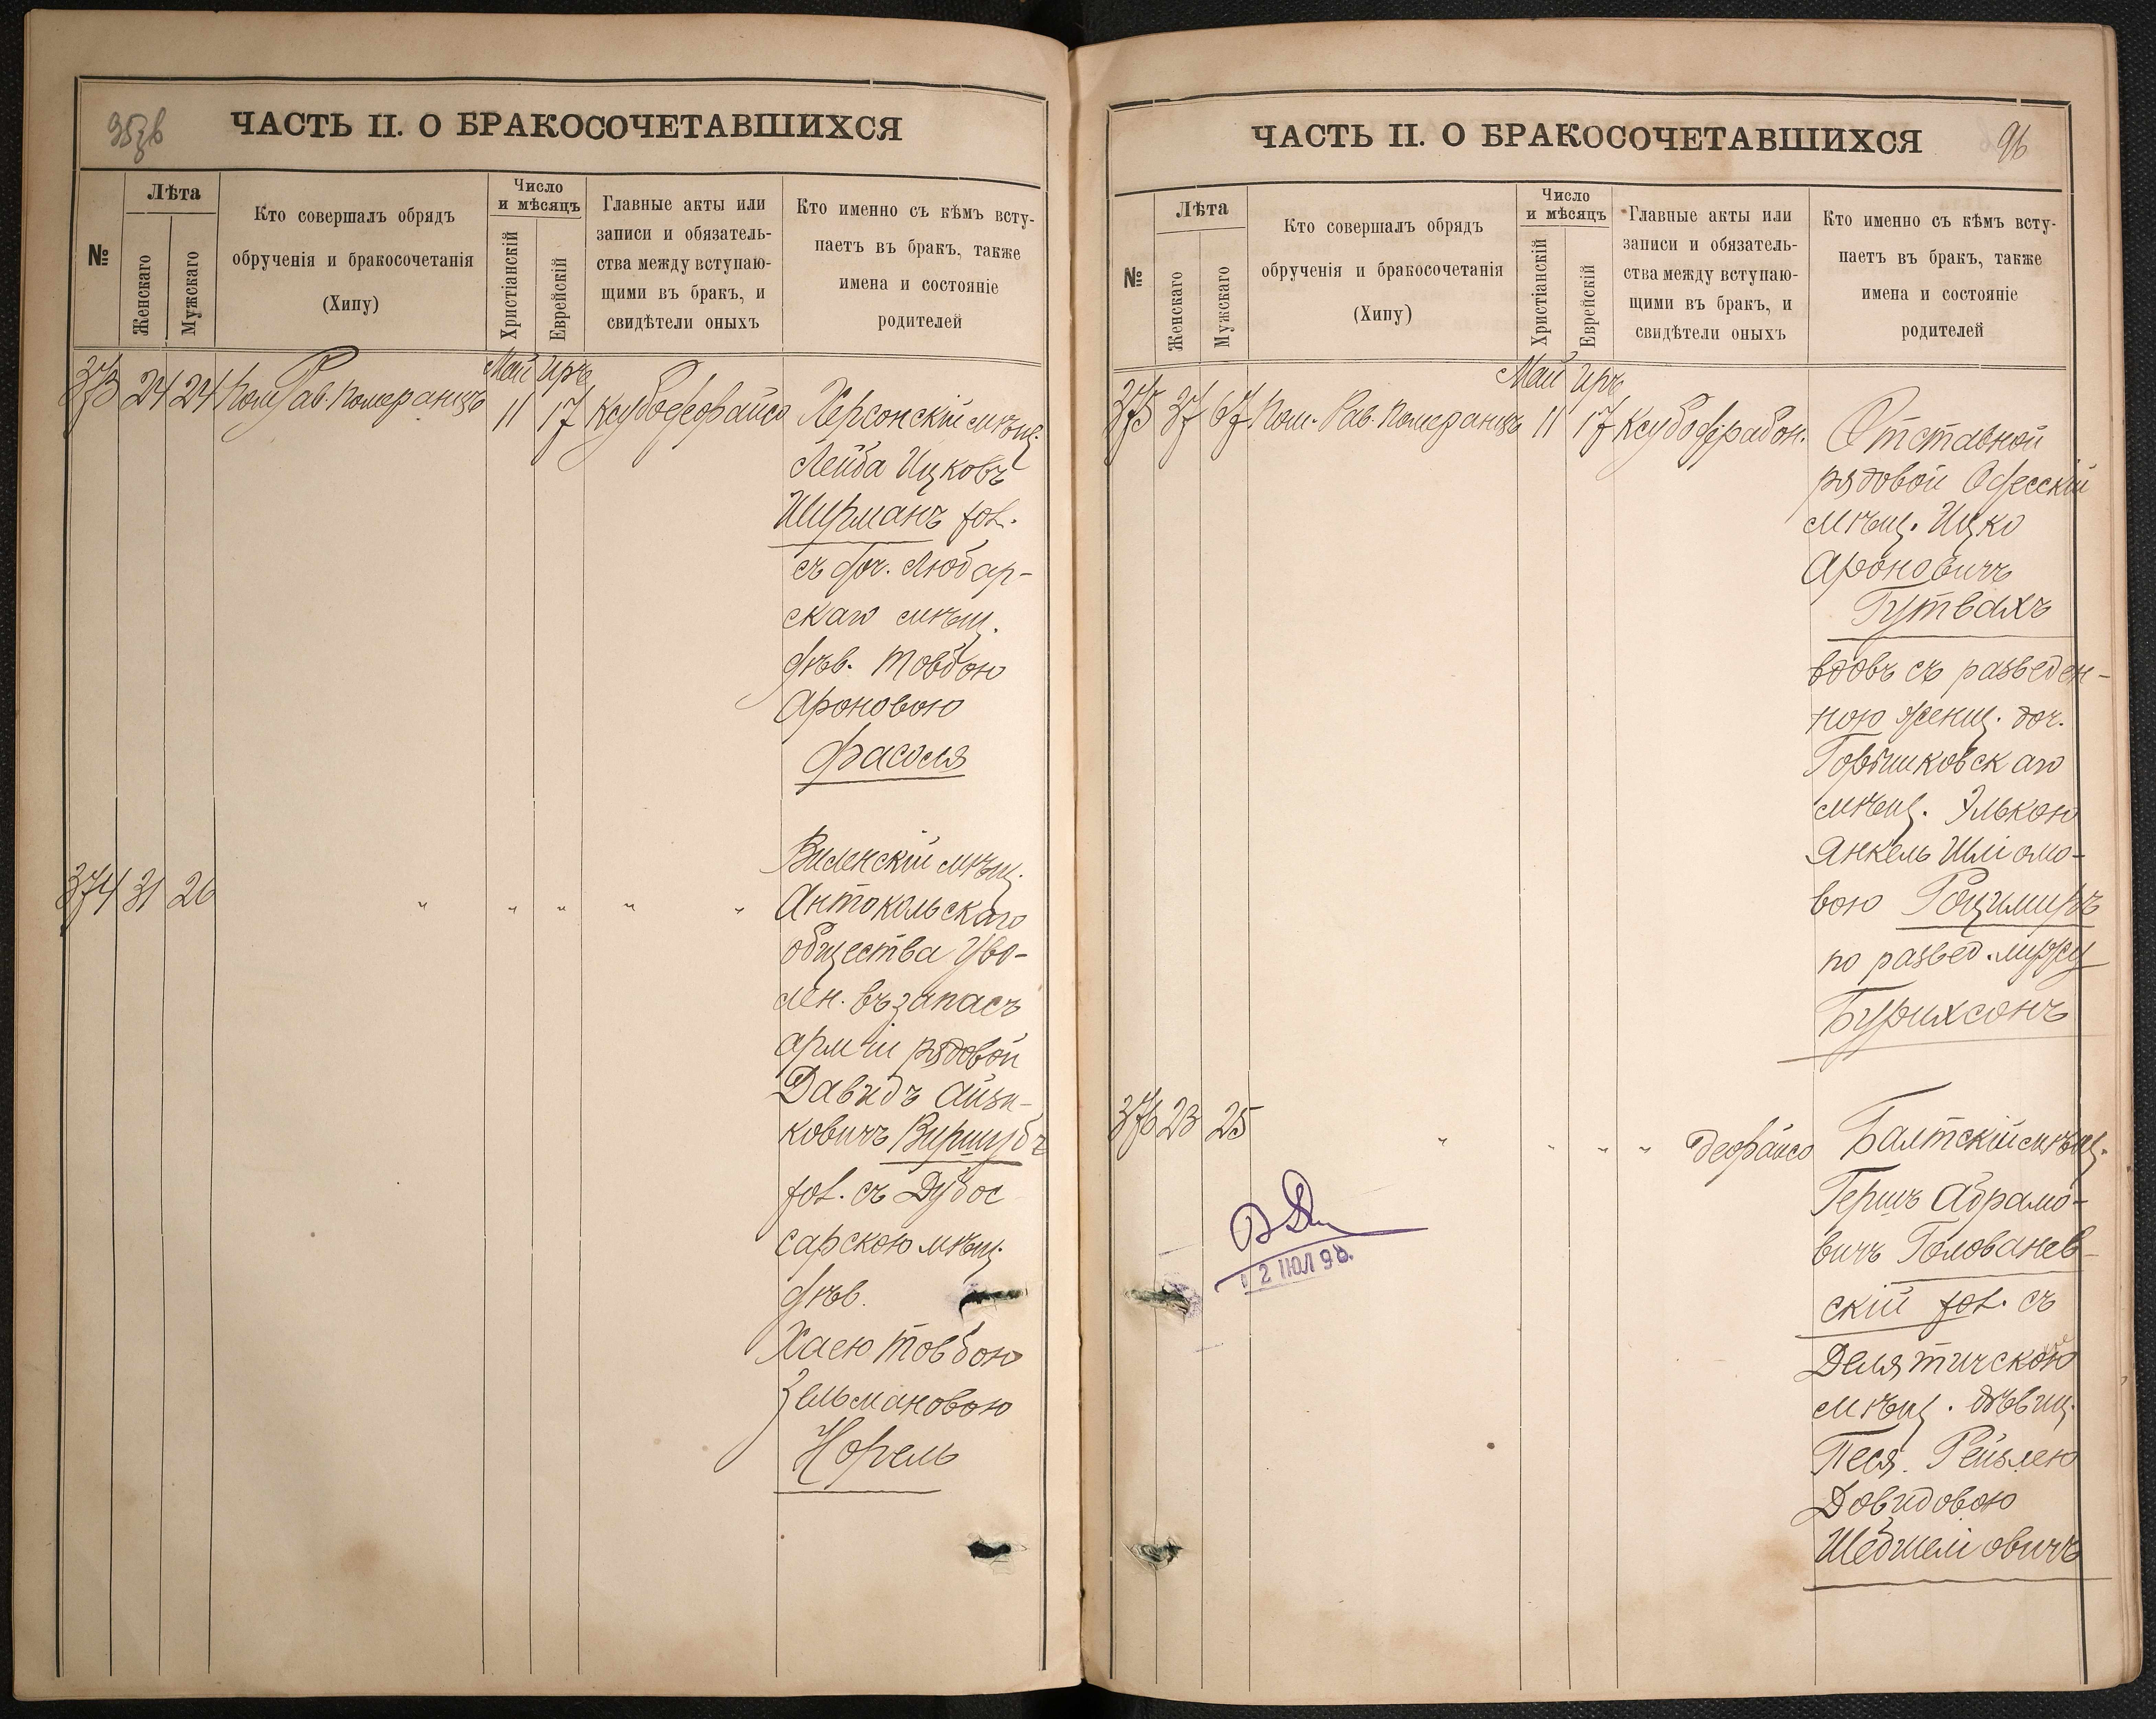 ЧАСТЬ II. О БРАКОСОЧЕТАВШИХСЯ
№
Лѣта
Женскаго
Мужскаго
Кто совершалъ обрядъ
обрученія и бракосочетанія
(Хипу)
Число
и мѣсяцъ
Христіанскій
Еврейскій
Главные акты или
записи и обязатель-
ства между вступаю-
щими въ бракъ, и
свидѣтели оныхъ
Кто именно съ кѣмъ всту-
паетъ въ бракъ, также
имена и состояніе
родителей
Май
373 24 24 Пом. Рав. Померанцъ 11 17
Херсонскій мѣщ.
Лейба Ицковъ
Ширманъ хол.
съ доч. Любар-
скаго мѣщ.
дѣв. Товбою
Ароновою
Фасоля
374 31 26 " " " " "
Виленскій мѣщ.
Антокольскаго
общества уво-
лен. въ запасъ
арміи рядовой
Давидъ Айзи-
ковичъ Виршубъ
хол. съ Дубос
сарскою мѣщ.
дѣв.
Хаею Товбою
Зельмановою
Норель
ЧАСТЬ II. О БРАКОСОЧЕТАВШИХСЯ
96
№
Лѣта
Женскаго
Мужскаго
Кто совершалъ обрядъ
обрученія и бракосочетанія
(Хипу)
Число
и мѣсяцъ
Христіанскій
Еврейскій
Главные акты или
записи и обязатель-
ства между вступаю-
щими въ бракъ, и
свидѣтели оныхъ
Кто именно съ кѣмъ всту-
паетъ въ бракъ, также
имена и состояніе
родителей
Май
375 37 67 Пом. Рав. Померанцъ 11 17
Отставной
рядовой Одесскій
мѣщ. Ицко
Ароновичъ
Гутвахъ
вдовъ съ разведен-
ною женщ. доч.
мѣщ. Элькою
Янкель Шліомо-
вою
по развед. мужу
Бурихсонъ
376 23 25 " " " "
Балтскій мѣщ.
Гершъ Абрамо-
вичъ Голованев-
скій хол. съ
Делятичскою
мѣщ. дѣвиц.
Песя Рейзлею
Довидовою
2 ІЮЛ 98.